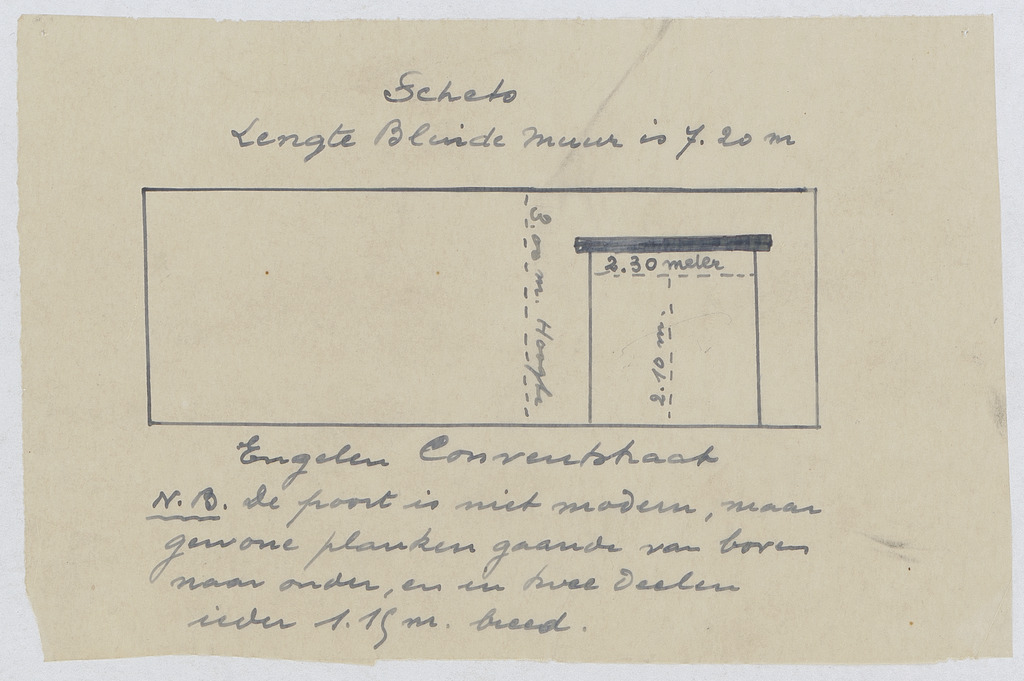 Schets
Lengte Blinde muur is 7.20 m
3.00 m. Hoogte
2.30 meter
2.10 m.
Engelen Conventstraat
N.B. De poort is niet modern, maar
gewone planken gaande van boven
naar onder, en in twee deelen
ieder 1.15 m. breed.